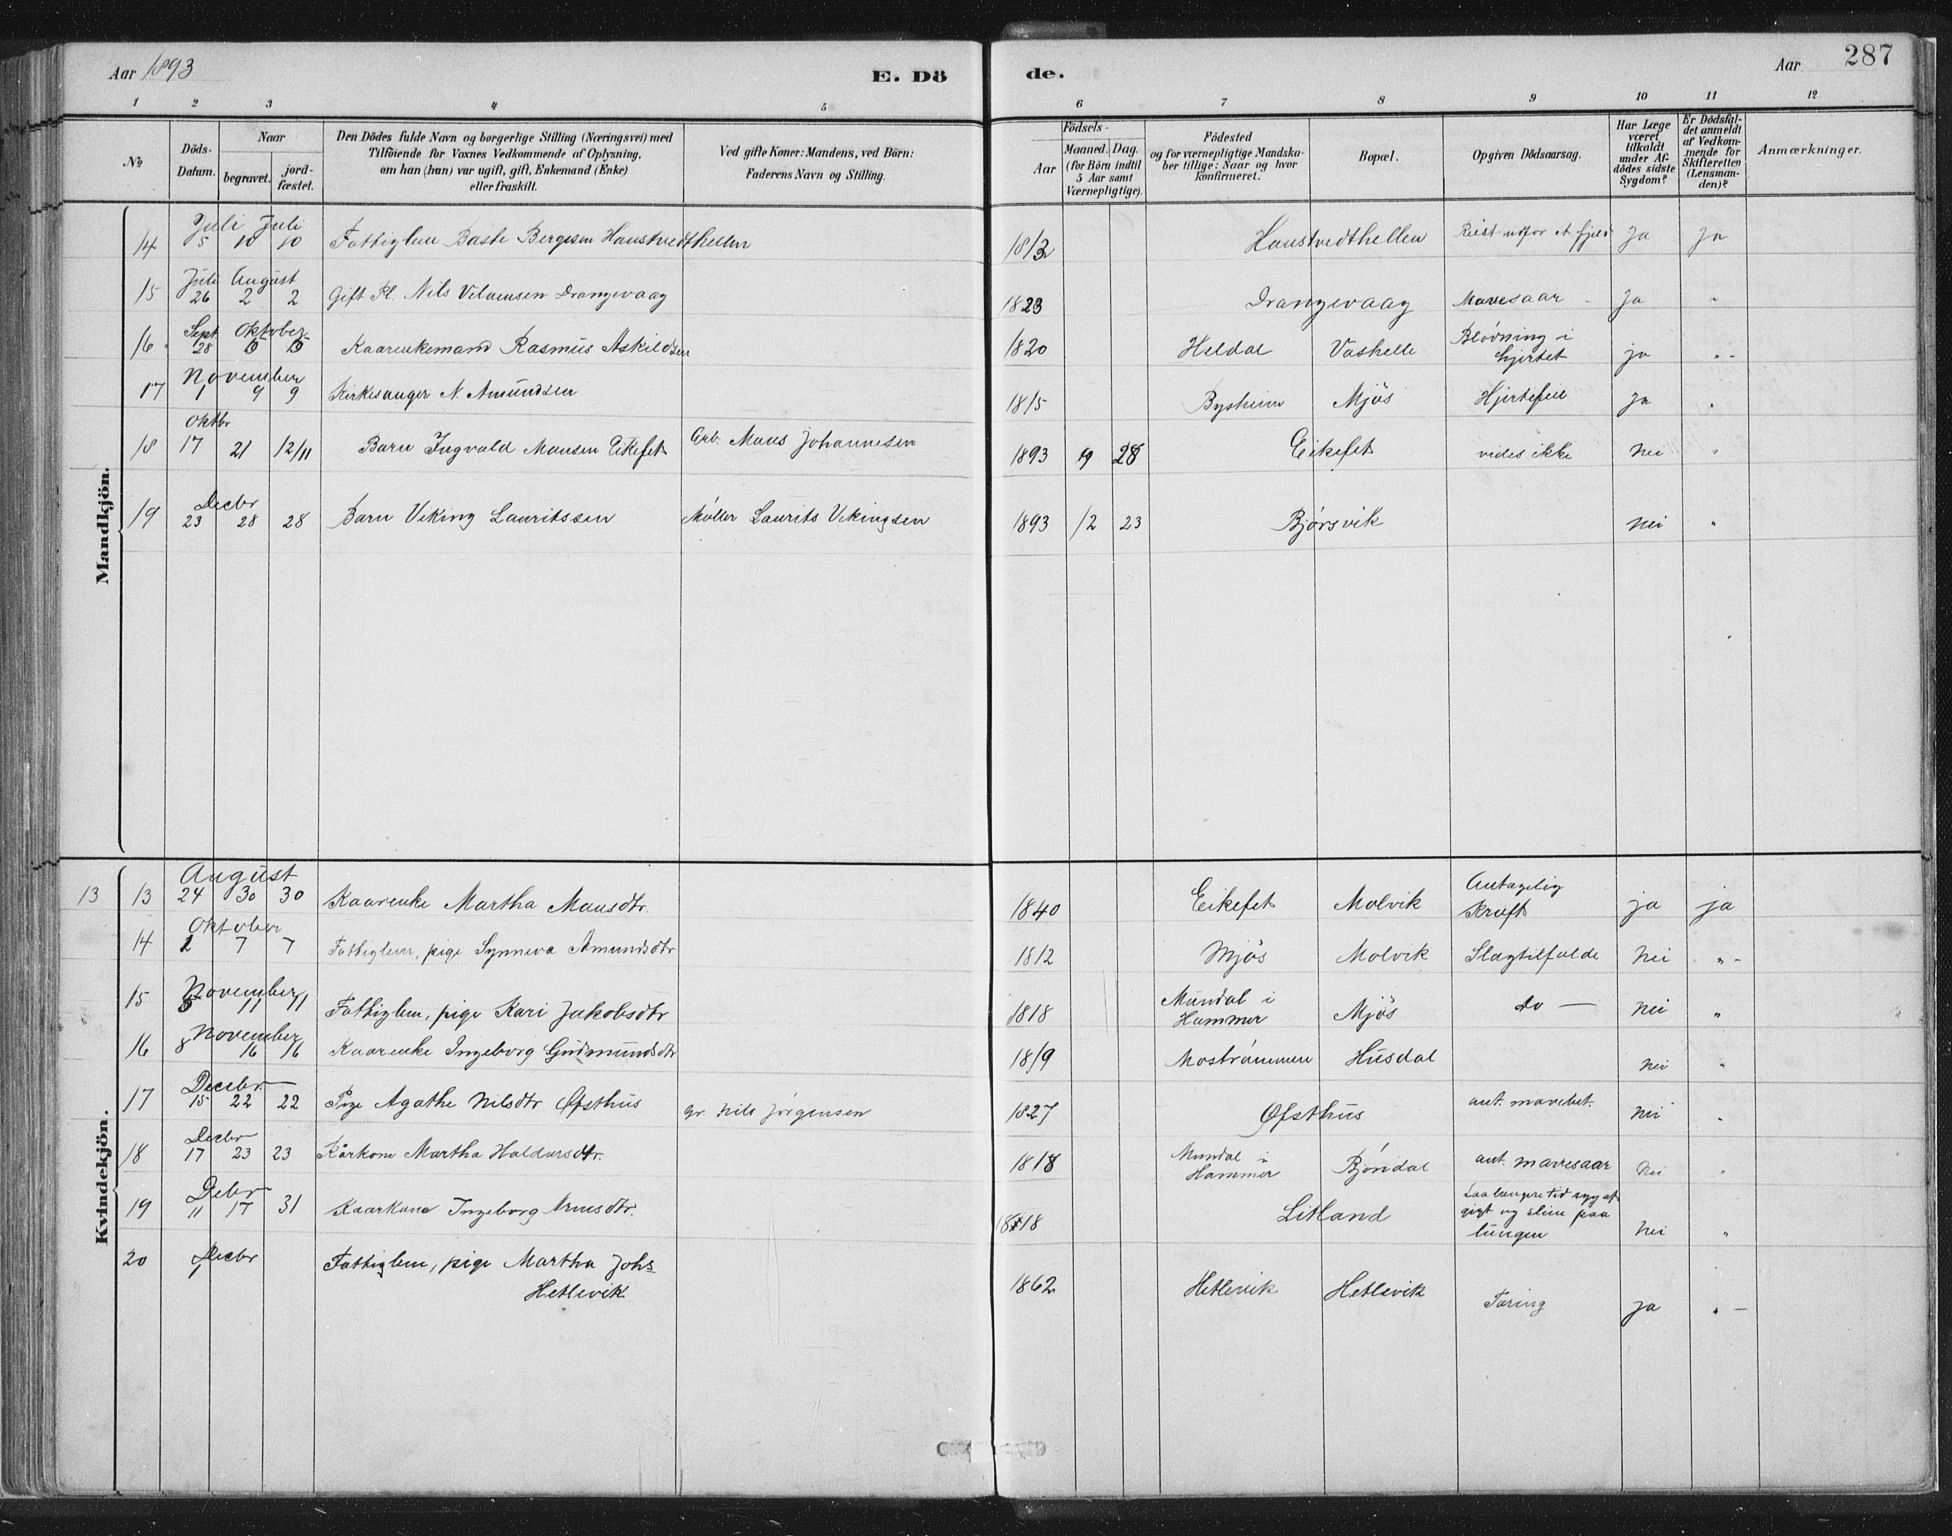 Aar 1893 E. Dö de. Aar 287
1 2 3 4 5 6 7 8 9 10 11 12
No
Döds-Datum.
Naar
begravet. jord-fæstet.
Den Dödes fulde Navn og borgerlige Stilling (Næringsvei) med
Tilföiende for Voxnes Vedkommende af Oplysning,
om han (hun) var ugift, gift, Enkemand (Enke)
eller fraskilt.
Ved gifte Koner: Mandens, ved Börn:
Faderens Navn og Stilling.
Födsels-
Aar
Maaned. Dag.
(for Börn indtil
5 Aar samt
Værnepligtige).
Födested
og for værnepligtige Mandska-
ber tillige: Naar og hvor
konfirmeret.
Bopæl.
Opgiven Dödsaarsag.
Har Læge
været
tilkaldt
under Af-
dödes sidste
Sygdom?
Er Dödsfal-
det anmeldt
af Vedkom-
mende for
Skifteretten
(Lensman-
den)?
Anmærkninger.
Mandkjön.
Juli Juli
14 5 10 10 Fattiglem Baste Bergesen Haustvedthellen 1813 Haustvedthellen Reist udfor et fjeld Ja Ja
Juli August
15 26 2 2 Gift Nils Drangevaag 1823 Drangevaag Mavesaar Ja "
Sept. Oktober
16 28 Kaarenkemand Rasmus Askildsen 1820 Heldal Vashelle Blødning i
hjertet ja "
November
17 1 9 9 Kirkesanger N. Amundsen 1815 Bysheim Mjøs Hjertefeil Ja "
Oktbr
18 17 21 12/11 Barn Ingvald Monsen Eikefet Arb. Mons Johannesen 1893 9 28 Eikefet vides ikke Nei "
Decbr
19 23 28 28 Barn Viking Lauritssen Møller Laurits Vikingsen 1893 12 23 Bjørsvik Nei "
Kvindekjön.
August
13 13 24 30 30 Kaarenke Martha Monsdtr. 1840 Eikefet Molvik Antagelig
Kræft ja ja
Oktober
14 1 7 7 Fattiglem, pige Synneva Amundsdtr 1812 Mjøs Molvik Slagtilfælde Nei "
November
15 11 11 Fattiglem, pige Kari Jakobsdtr 1818 Mundal i
Hammer Mjøs do — Nei "
November
16 8 16 16 Kaarenke Ingeborg Gudmundsdtr 1819 Mostrømmen Husdal Nei "
Decbr.
17 15 22 22 Pige Agathe Nilsdtr Øfsthus gr. Nils Jørgensen 1827 Øfsthus ant. mavebet. Nei "
Decbr
18 17 23 23 Kårkone Martha Haldorsdtr. 1818 Mundal i
Hammer Bjøndal ant. mavesaar Nei "
Debr
19 11 17 31 Kaarkone Ingeborg Arnesdtr. 1818 Litland Laa længere tid syg af
gigt og sliim paa
lungen Nei "
20 Decbr
1 Fattiglem, pige Martha Johs
Hetlevik 1862 Hetlevik Hetlevik Tæring Ja " —